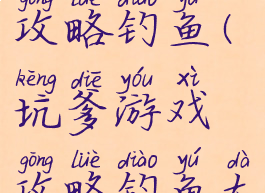 gōng lüè diào yú
攻略钓鱼(
kēng diē yóu xì
坑爹游戏
gōng lüè diào yú dà
攻略钓鱼大